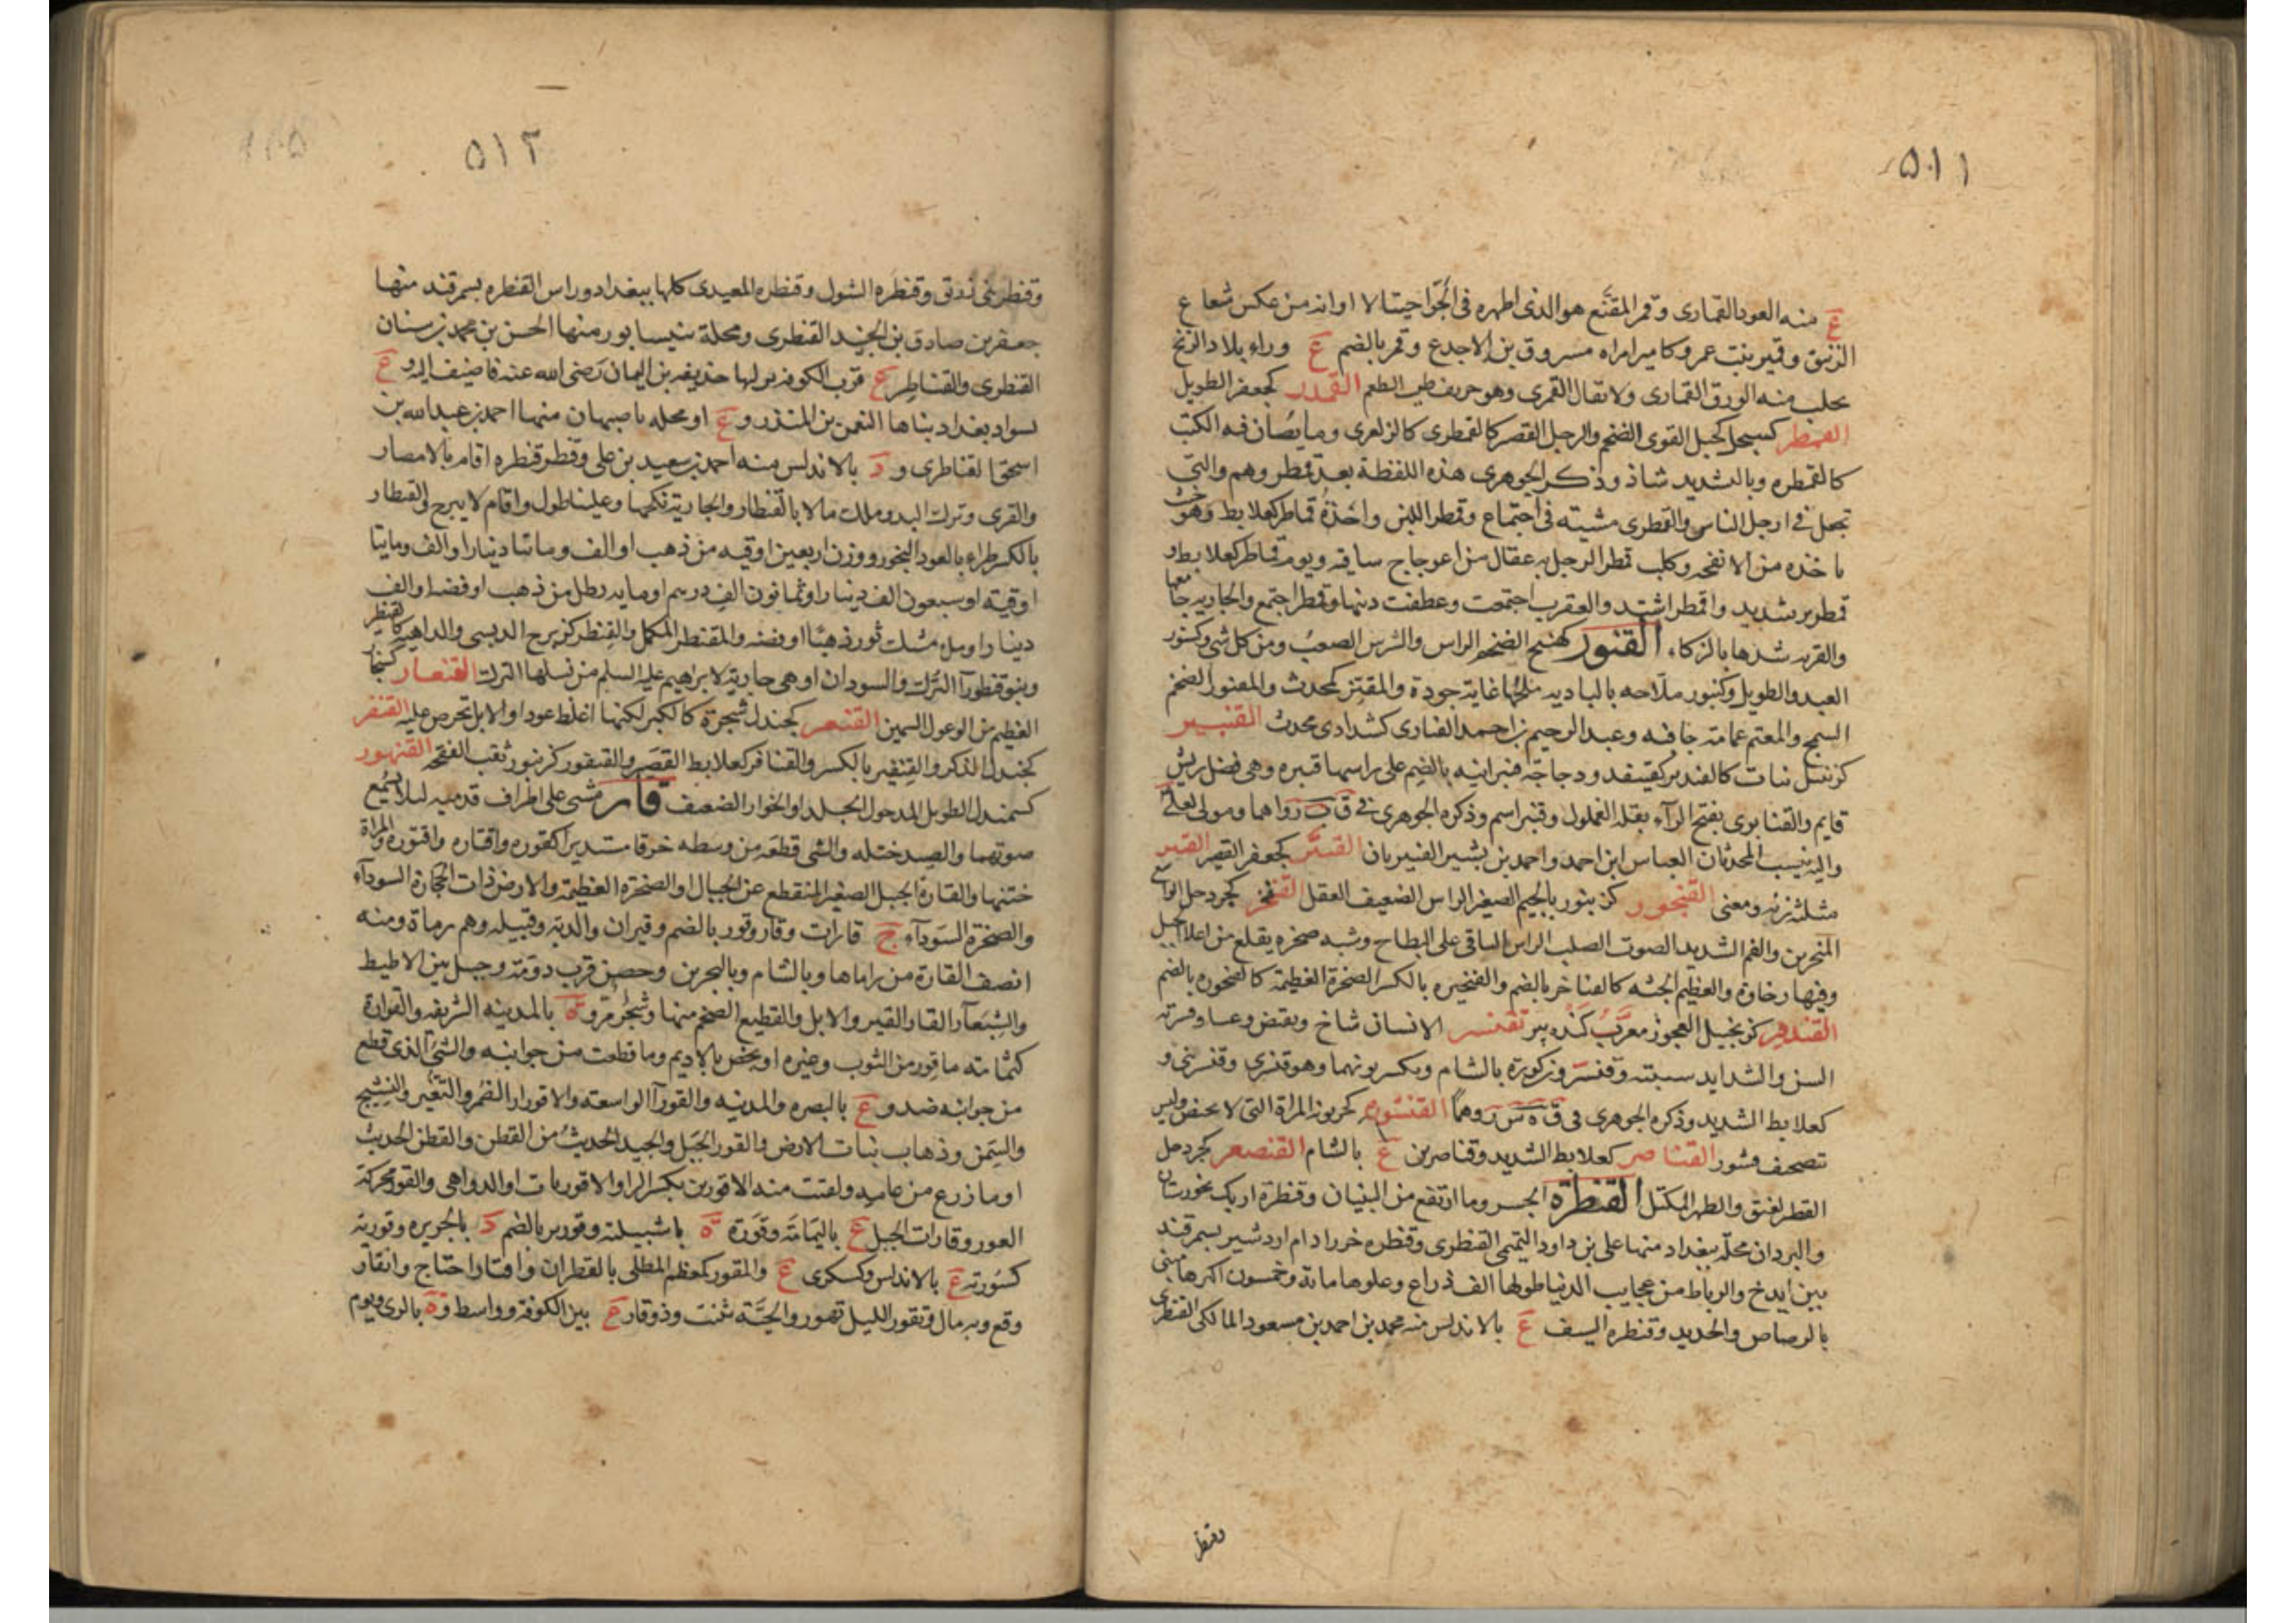 ٥١١
ع منه العود القمارى وقمر المقنع هو الذى اظهره فى الجو احتيالا او انه من عكس شعاع
الزئبق وقمير بنت عمرو كامير امراه مسروق بن الاجدع وقمر بالضم ع وراء بلاد الزنج
يجلب منه الورق القمارى ولا يقال القمرى وهو حريف طيب الطعم القمدر كجعفر الطويل
القمطر كسبحل الجمل القوى الضخم والرجل القصير كالقمطرى كالزبعرى وما يصان فيه الكتب
كالقمطره وبالتشديد شاذ وذكر الجوهرى هذه اللفظة بعد قمطر وهم والتى
تجعل فى ارجل الناس والقمطرى مشيته فى اجتماع وقمطر اللبن واخذه قماطر كعلابط وهو خبث
ياخذه من الانفحه وكلب قمطر الرجل به عقال من اعوجاج ساقيه ويوم قماطر كعلابط و
قمطرير شديد واقمطر اشتد والعقرب اجتمعت وعطفت ذنبها وقمطر اجتمع والجاريه جامعها
والقربه شدها بالوكاء القنور كهبيخ الضخم الراس والشرس الصعب ومن كل شى وكسنور
العبد والطويل وكتنور ملاحه بالباديه ملحها غاية جودة والمقنر كمحدث والمقنور الضخم
السمج والمعتم عمامة جافيه وعبد الرحيم بن احمد القنارى كشدادى محدث القنبير
كزنبيل نبات كالقنيبر كقنيفذ ودجاجة قنبرانيه بالضم على راسها قنبره وهى فضل ريش
قايم والقنابرى بفتح الراء بقلة الغملول وقنبر اسم وذكره الجوهرى فى ق ب ر واهما ومولى لعلى
واليه ينسب المحدثان العباس ابن احمد واحمد بن بشير القنبريان القنثر كجعفر القصير القنجر
مثلثه زنه ومعنى القنجور كزنبور بالجيم الصغير الراس الضعيف العقل القنخر كجردحل الواسع
المنخرين والفم الشديد الصوت الصلب الراس الباقى على النطاح وشبه صخره يقلع من اعلا الجبل
وفيها رخاوة والعظيم الجثه كالقناخر بالضم والقنخيره بالكسر الصخرة العظيمة كالقنخوره بالضم
القندفير كزنجبيل العجوز معرب كنده پير تقنسر الانسان شاخ وتقبض وعسا وقنسرته
السن والشدايد شيبته وقنسر وزكورة بالشام وتكسر نونهما وهو قنسرى وقنسرينى و
كعلابط الشديد وذكره الجوهرى فى ق س ر وهما القنشوره كخربوزه المراة التى لا تحيض وليس
تصحيف قشور القناصر كعلابط الشديد وقناصرين ع بالشام القنصعر كجردحل
القطير لعنق والظهر المكتل القنطرة الجسر وما ارتفع من البنيان وقنطرة اربك بخورستان
والبردان محله ببغداد منها على بن داود التيمى القنطرى وقنطره خرزاد ام اردشير بسمرقند
بين ايذج والرباط من عجايب الدنيا طولها الف ذراع وعلوها ماية وخمسون اكثرها مبنى
بالرصاص والحديد وقنطره السيف ع بالاندلس منه محمد بن احمد بن مسعود المالكى القنطرى
وقنطر
٥١٢
وقنطره بنى زريق وقنطره الشوك وقنطره المعبدى كلها ببغداد وراس القنطره بسمرقند منها
جعفر بن صادق بن الجنيد القنطرى ومحلة بنيسابور منها الحسن بن محمد بن سنان
القنطرى والقناطر ع قرب الكوفه نزلها حذيفه بن اليمان رضى الله عنه فاضيف اليه و ع
بسواد بغداد بناها النعمن بن المنذر و ع او محله باصبهان منها احمد بن عبد الله بن
اسحق القناطرى و د بالاندلس منه احمد بن سعيد بن على وقنطر قنطره اقام بالامصار
والقرى وترك البدو وملك مالا بالقنطار والجارية نكحها وعلينا طول واقام لا يبرح والقنطار
بالكسر طراء بالعود البخور ووزن اربعين اوقيه من ذهب او الف ومائتا دينار او الف ومائتا
اوقيته او سبعون الف دينار او ثمانون الف درهم او مايه رطل من ذهب او فضه او الف
دينار او ملء مسك ثور ذهبا او فضه والمقنطر المكمل والقنطر كزبرج الدبسى والداهيه كالقنطير
وبنو قنطورآ الترك والسودان او هى جارية لابراهيم عليه السلم من نسلها الترك القنعار كسنجار
العظيم من الوعول السمين القنعر كجندل شجرة كالكبر لكنها اغلظ عودا والابل تحرص عليه القنفر
كجندل الذكر والقنفير بالكسر والقنافر كعلابط القصير والقنفور كزنبور ثقب الفقحه القنهور
كسمندل الطويل المدخول الجلد او الخوار الضعيف قار مشى على اطراف قدميه ليلا يسمع
صوتهما والصيد ختله والشى قطعه من وسطه خرقا مستديرا كقوره واقتاره واقتوره والمراة
ختنها والقارة الجبل الصغير المنقطع عن الجبال او الصخرة العظيمة والارض ذات الحجارة السوداء
والصخرة السوداء ج قارات وقار وقور بالضم وقيران والدبة وقبيله وهم رماة ومنه
انصف القارة من راماها وبالشام وبالبحرين وحصن قرب دومة وجبل بين الاطيط
والشبعآء والقار القير والابل والقطيع الضخم منها وشجر مر و ة بالمدينه الشريفه والقوارة
كثمامة ما قور من الثوب وغيره او يخص بالاديم وما قطعت من جوانبه والشئ الذى قطع
من جوانبه ضد و ع بالبصره والمدينه والقورآ الواسعه والاقورار الضمر والتغير والتشنج
والسمن وذهاب نبات الارض والقور الحبل والجيد الحديث من القطن والقطن الحديث
او ما زرع من عاميه ولقيت منه الاقورين بكسر الرا والاقوريات او الدواهى والقور محركة
العور وقارات الجبل ع باليمامة وقورة ة باشبيلة وقورس بالضم د بالجزيره وقورية
كسورية ع بالاندلس وكسكرى ع والمقور كمعظم المطلى بالقطران واقتار احتاج وانقار
وقع وبه مال وتقور الليل تهور والحية تثنت وذو قار ع بين الكوفة وواسط و ة بالرى ويوم